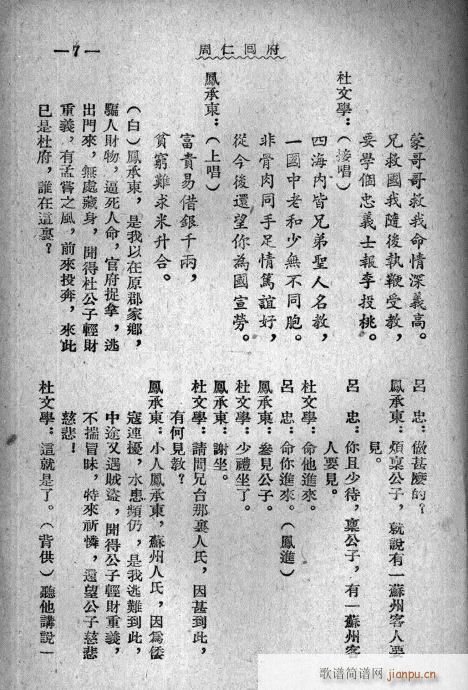 周仁回府
—7—
蒙哥哥救我命情深義高。
兄救國我隨後執鞭受教，
要學個忠義士報李投桃。
杜文學：（接唱）
四海內皆兄弟聖人名教，
一國中老和少無不同胞。
非骨肉同手足情篤誼好，
從今後還望你為國宣勞。
鳳承東：（上唱）
富貴易借銀千兩，
貧窮難求米升合。
（白）鳳承東，是我以在原郡家鄉，
騙人財物，逼死人命，官府捉拿，逃
出門來，無處藏身，聞得杜公子輕財
重義，有孟嘗之風，前來投奔，來此
已是杜府，誰在這裏？
呂　忠：做甚麼的？
鳳承東：煩稟公子，就說有一蘇州客人要
見。
呂　忠：你且少待，稟公子，有一蘇州客
人要見。
杜文學：命他進來。
呂　忠：命你進來。（鳳進）
鳳承東：參見公子。
杜文學：少禮坐了。
鳳承東：謝坐。
杜文學：請問兄台那裏人氏，因甚到此，
有何見教？
鳳承東：小人鳳承東，蘇州人氏，因爲倭
寇連擾，水患頻仍，是我逃難到此，
中途又遇賊盜，聞得公子輕財重義，
不揣冒昧，特來祈憐，還望公子慈悲
慈悲！
杜文學：這就是了。（背供）聽他講說一
歌谱简谱网
jianpu.cn